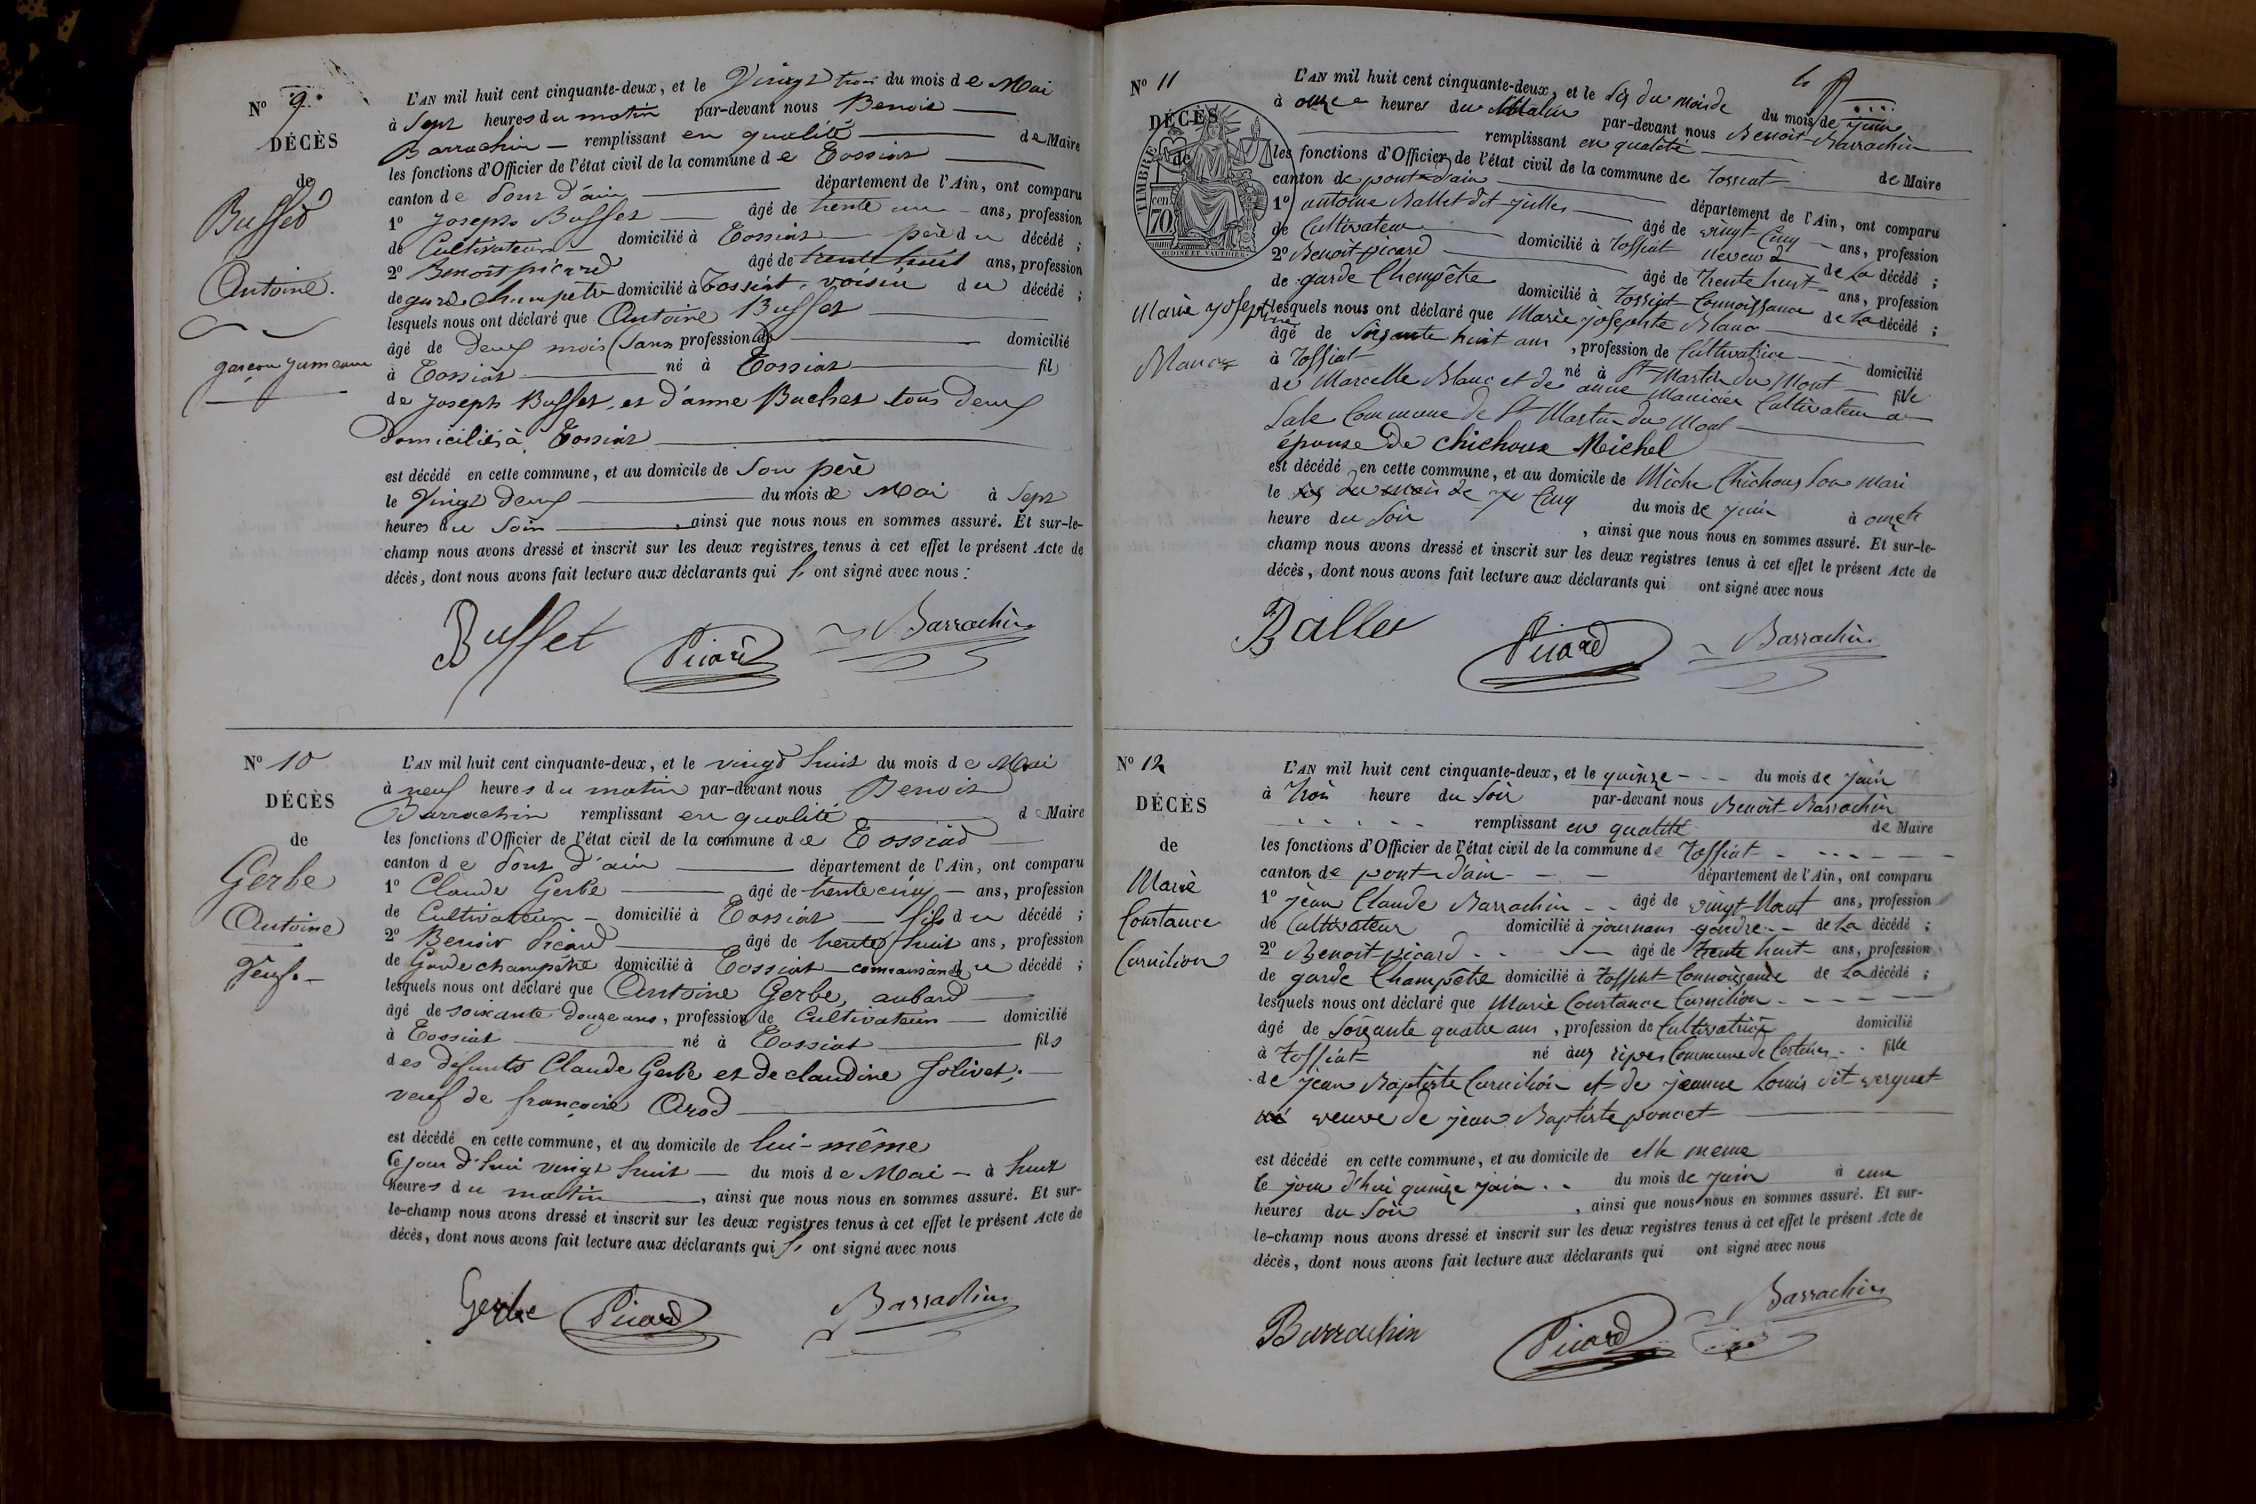 Nº 9.
DÉCÈS
de
Buffet
Antoine.
garçon jumeau
L'AN mil huit cent cinquante-deux, et le Vingt trois du mois de Mai
à Sept heures du matin par-devant nous Benoit
Barrachin remplissant en qualité de Maire
les fonctions d'Officier de l'état civil de la commune de Tossiat
canton de Pont d'ain département de l'Ain, ont comparu
1º Joseph Buffet âgé de trente un ans, profession
de Cultivateur domicilié à Tossiat père du décédé ;
2º Benoit picard âgé de trente huit ans, profession
de garde Champêtre domicilié à Tossiat, voisin du décédé ;
lesquels nous ont déclaré que Antoine Buffet
âgé de Deux mois (sans profession de domicilié
à Tossiat né à Tossiat fils
de Joseph Buffet, et d'anne Buchet tous deux
Domiciliés à Tossiat
est décédé en cette commune, et au domicile de Son père
le Vingt Deux du mois de Mai à Sept
heures du Soir, ainsi que nous nous en sommes assuré. Et sur-le-
champ nous avons dressé et inscrit sur les deux registres tenus à cet effet le présent Acte de
décès, dont nous avons fait lecture aux déclarants qui ont signé avec nous :
Buffet Picard Barrachin
Nº 10
DÉCÈS
de
Gerbe
Antoine
Veuf.
L'AN mil huit cent cinquante-deux, et le vingt huit du mois de Mai
à neuf heures du matin par-devant nous Benoit
Barrachin remplissant en qualité de Maire
les fonctions d'Officier de l'état civil de la commune de Tossiat
canton de Pont d'ain département de l'Ain, ont comparu
1º Claude Gerbe âgé de trente cinq ans, profession
de Cultivateur domicilié à Tossiat fils du décédé ;
2º Benoit Picard âgé de trente huit ans, profession
de Garde champêtre domicilié à Tossiat connaissance du décédé ;
lesquels nous ont déclaré que Antoine Gerbe, aubard
âgé de soixante douze ans, profession de Cultivateur domicilié
à Tossiat né à Tossiat fils
des défunts Claude Gerbe et de claudine Jolivet,
veuf de françoise Arod
est décédé en cette commune, et au domicile de lui-même
Ce jour d'hui vingt huit du mois de Mai à huit
heures du matin, ainsi que nous nous en sommes assuré. Et sur-
le-champ nous avons dressé et inscrit sur les deux registres tenus à cet effet le présent Acte de
décès, dont nous avons fait lecture aux déclarants qui ont signé avec nous
Gerbe Picard Barrachin
Nº 11
DÉCÈS
de
TIMBRE
70
Marie josephte
Blanc
L'AN mil huit cent cinquante-deux, et le six du mois de du mois de juin
à onze heures du Matin par-devant nous Benoit Barrachin
remplissant en qualité de Maire
les fonctions d'Officier de l'état civil de la commune de Tossiat
canton de pont d'ain département de l'Ain, ont comparu
1º antoine Ballet dit jullez âgé de vingt Cinq ans, profession
de Cultivateur domicilié à Tossiat neveu de La décédé ;
2º Benoit picard âgé de trente huit ans, profession
de garde Champêtre domicilié à Tossiat Connoissance de La décédé ;
lesquels nous ont déclaré que Marie josephte Blanc
âgé de Soixante huit ans, profession de Cultivatrice domicilié
à Tossiat né à St Martin du Mont fille
de Marcelle Blanc et de anne Manicier Cultivateur a
Sale Commune de St Martin du Mont
épouse De chichoux Michel
est décédé en cette commune, et au domicile de Miche Chichoux Son mari
le six du mois de Cinq du mois de juin à onze
heure du Soir, ainsi que nous nous en sommes assuré. Et sur-le-
champ nous avons dressé et inscrit sur les deux registres tenus à cet effet le présent Acte de
décès, dont nous avons fait lecture aux déclarants qui ont signé avec nous
Ballet Picard Barrachin
Nº 12
DÉCÈS
de
Marie
Constance
Curnilion
L'AN mil huit cent cinquante-deux, et le quinze du mois de juin
à trois heure du Soir par-devant nous Benoit Barrachin
remplissant en qualité de Maire
les fonctions d'Officier de l'état civil de la commune de Tossiat
canton de pont d'ain département de l'Ain, ont comparu
1º jean Claude Barrachin âgé de vingt Neuf ans, profession
de Cultivateur domicilié à journans gendre de La décédé ;
2º Benoit picard âgé de trente huit ans, profession
de garde Champêtre domicilié à Tossiat Connoissance de La décédé ;
lesquels nous ont déclaré que Marie Constance Curnilion
âgé de Soixante quatre ans, profession de Cultivatrice domicilié
à Tossiat né aux ripes Commune de Certines fille
de jean Baptiste Curnilion et de jeanne Louis dit verguet
né veuve de jean Baptiste poncet
est décédé en cette commune, et au domicile de elle meme
Ce jour d'hui quinze juin du mois de juin à une
heures du Soir, ainsi que nous nous en sommes assuré. Et sur-
le-champ nous avons dressé et inscrit sur les deux registres tenus à cet effet le présent Acte de
décès, dont nous avons fait lecture aux déclarants qui ont signé avec nous
Barrachin Picard Barrachin